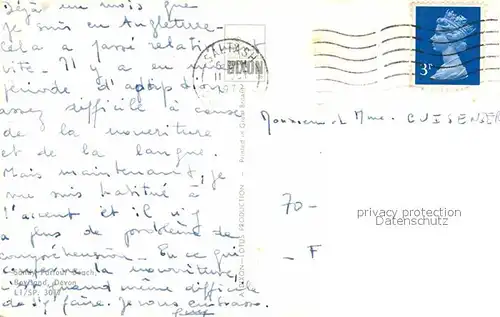 Déjà un mois que
je suis en Angleterre.
Cela a passé relativement
vite. Il y a eu une
période d'adaptation
assez difficile à cause
de la nourriture
et de la langue.
Mais maintenant, je
me suis habitué à
l'accent et il n'y
a plus de problème de
compréhension. En ce qui
concerne la nourriture,
c'est quand même difficile
de s'y faire. Je vous embrasse.
SALTASH
11
3P
Monsieur et Mme. CUISENIER
70-
- F
privacy protection
Datenschutz
PRODUCTION - Printed in Great Britain
Sandy Parlour Beach,
Devon.
L1/SP.